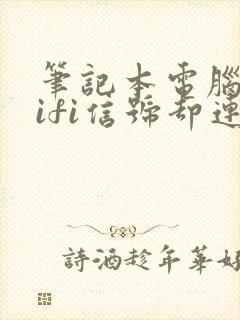 筆記本電腦
ifi信號却連
詩酒趁年華好